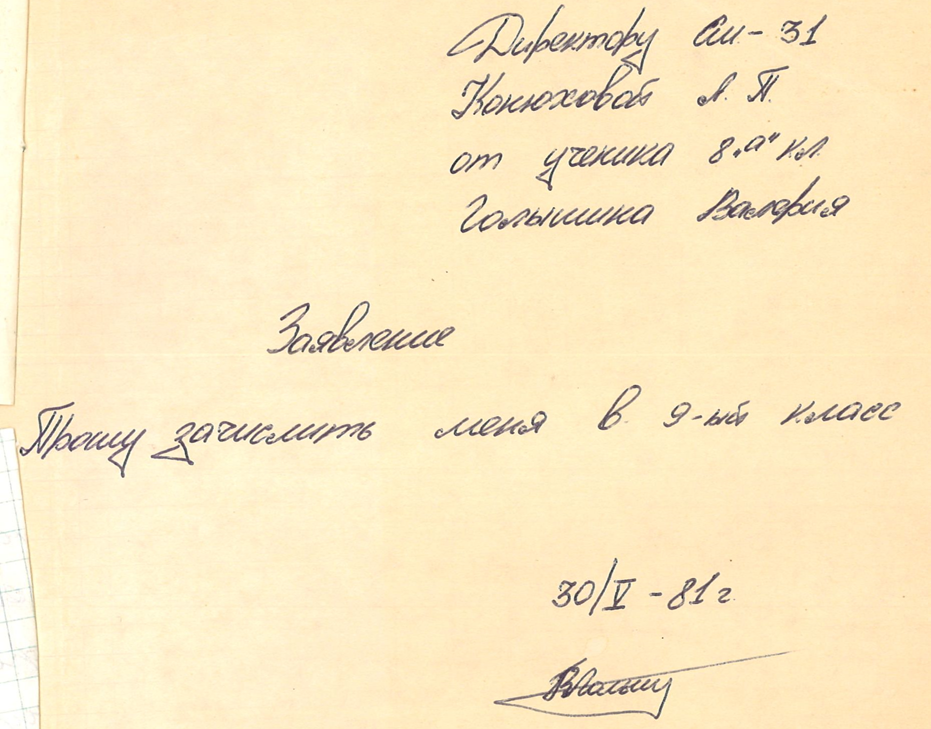 Директору сш-31
Конюховой Л.П.
от ученика 8 „а" кл.
Голышина Валерия
Заявление
Прошу зачислить меня в 9-ый класс
30/V - 81 г.